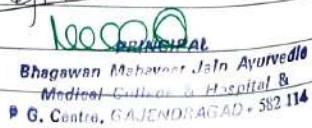 PRINCIPAL
Bhagawan Mahaveer Jain Ayurvedic
Medical College & Hospital &
P. G. Centre, GAJENDRAGAD - 582 114